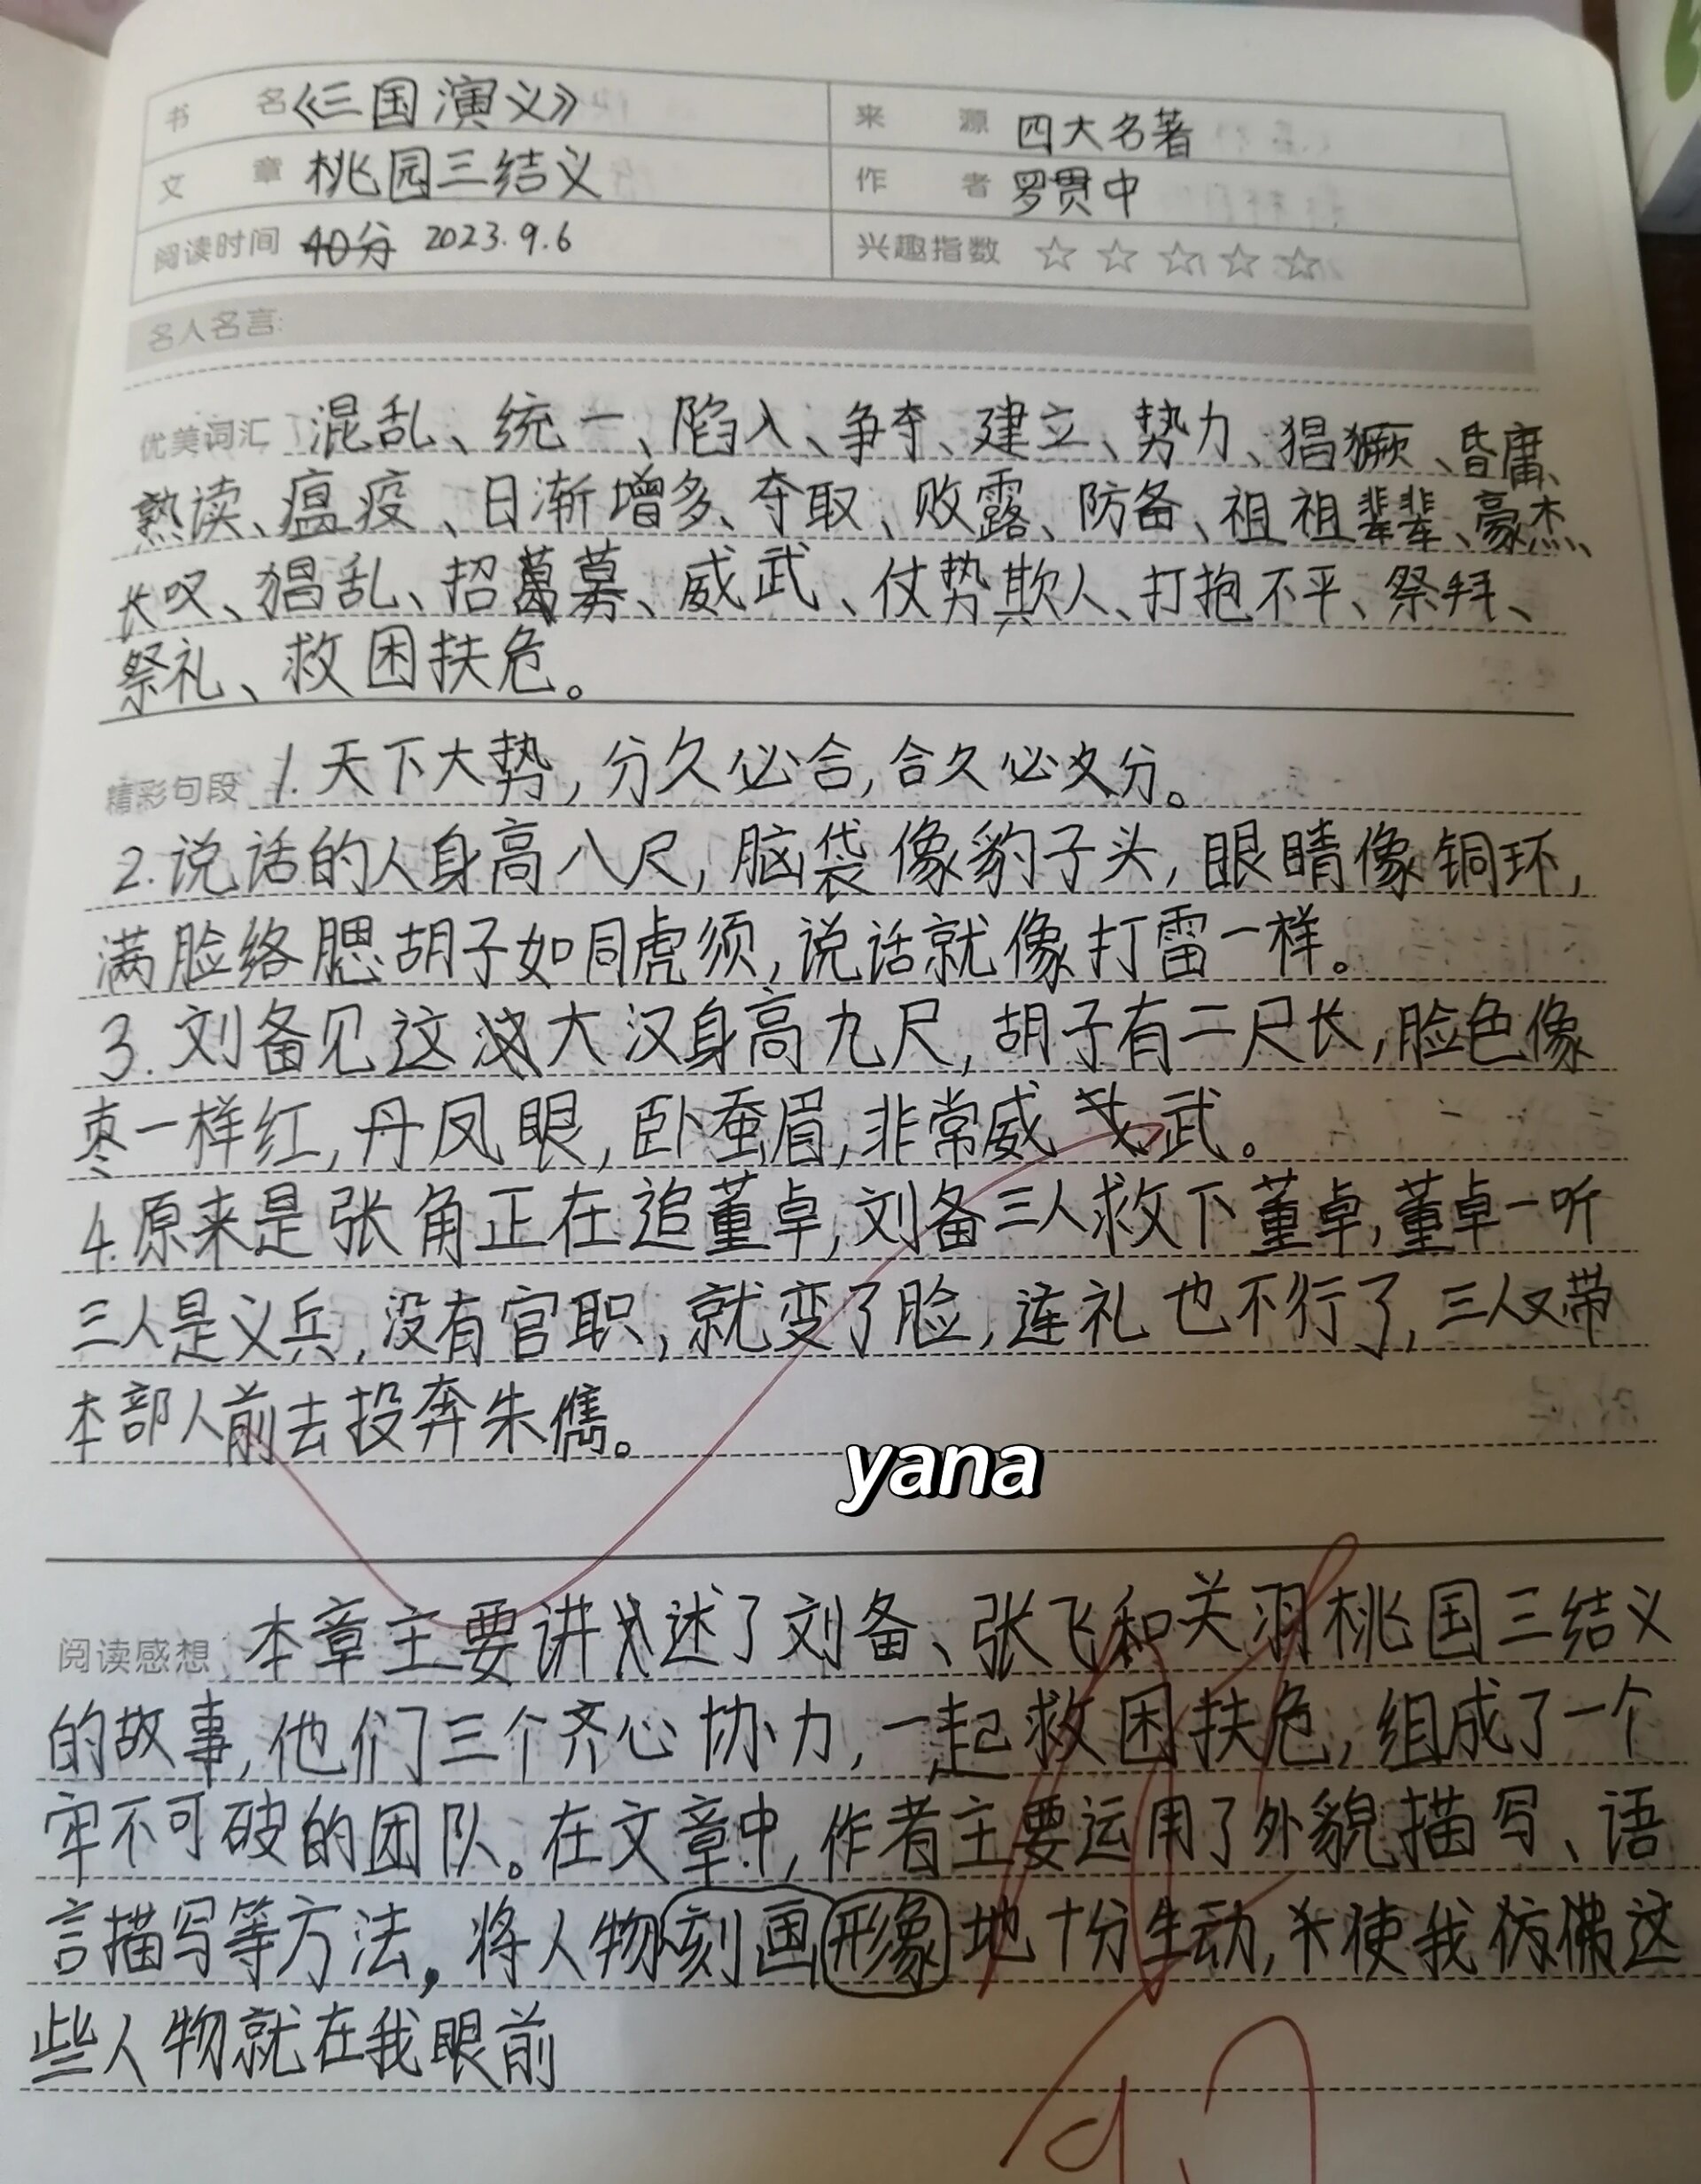 书 名 《三国演义》 来 源 四大名著
文 章 桃园三结义 作 者 罗贯中
阅读时间 40分 2023.9.6 兴趣指数 ☆☆☆☆☆
名人名言:
优美词汇 混乱、统一、陷入、争夺、建立、势力、猖獗、昏庸、
熟读、瘟疫、日渐增多、夺取、败露、防备、祖祖辈辈、豪杰、
长叹、猖乱、招募、威武、仗势欺人、打抱不平、祭拜、
祭礼、救困扶危。
精彩句段 1.天下大势,分久必合,合久必分。
2.说话的人身高八尺,脑袋像豹子头,眼睛像铜环,
满脸络腮胡子如同虎须,说话就像打雷一样。
3.刘备见这大汉身高九尺,胡子有二尺长,脸色像
枣一样红,丹凤眼,卧蚕眉,非常威武。
4.原来是张角正在追董卓,刘备三人救下董卓,董卓一听
三人是义兵,没有官职,就变了脸,连礼也不行了,三人又带
本部人前去投奔朱儁。
yana
阅读感想 本章主要讲述了刘备、张飞和关羽桃国三结义
的故事,他们三个齐心协力,一起救困扶危,组成了一个
牢不可破的团队。在文章中,作者主要运用了外貌描写、语
言描写等方法,将人物刻画形象地十分生动,使我仿佛这
些人物就在我眼前